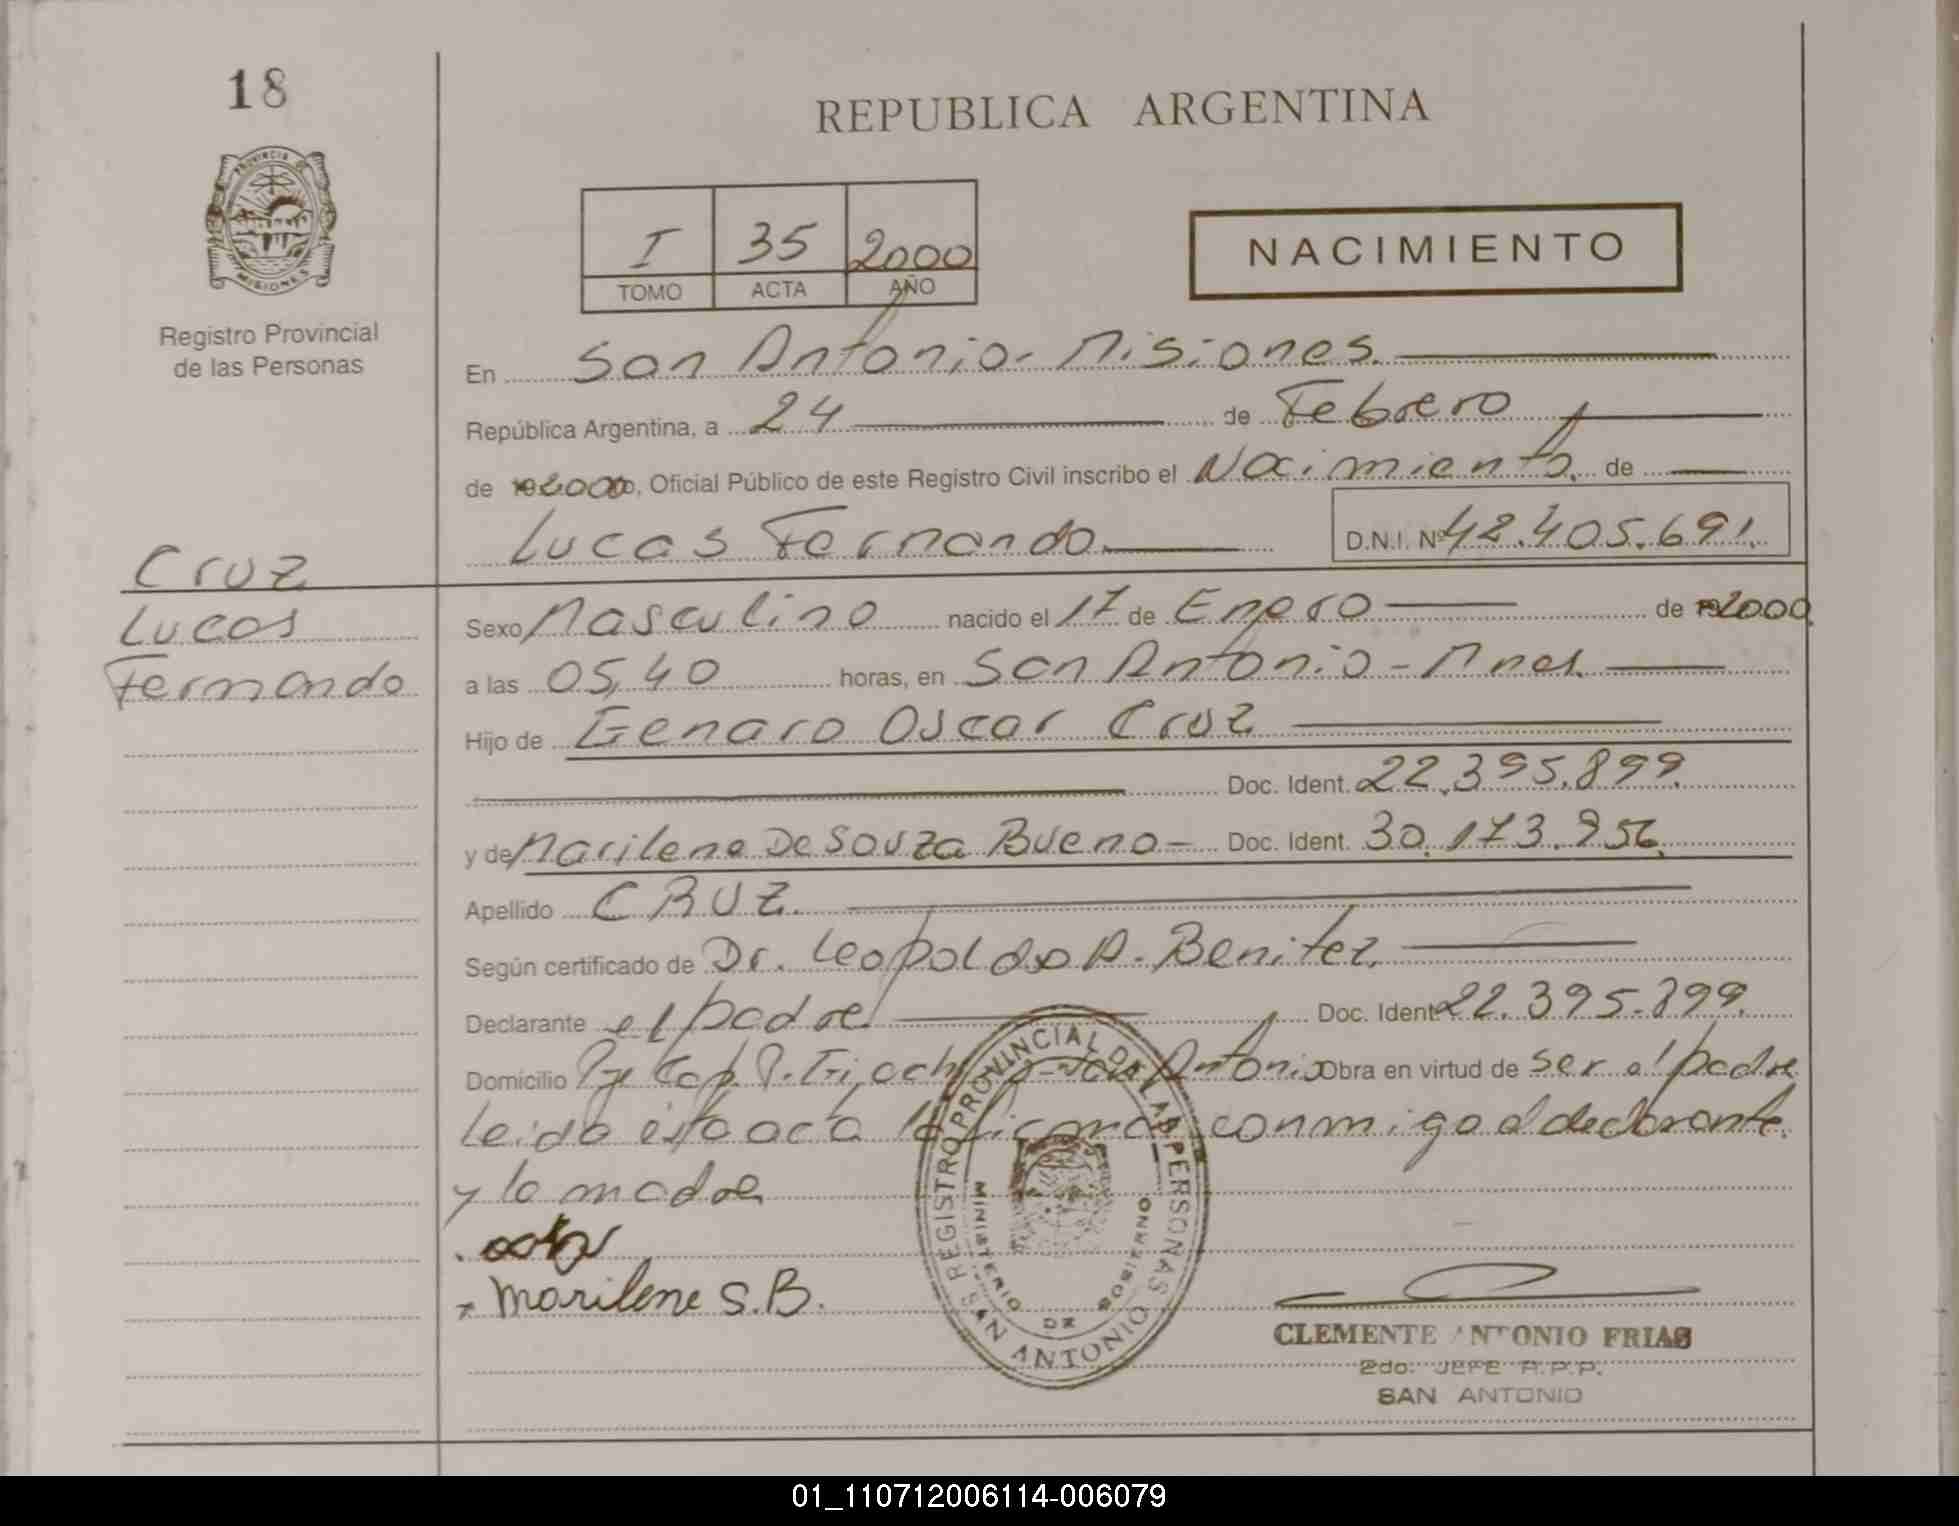 18
REPUBLICA ARGENTINA
PROVINCIA DE
MISIONES
Registro Provincial
de las Personas
I 35 2000
TOMO ACTA AÑO
NACIMIENTO
En San Antonio - Misiones.
República Argentina, a 24 de Febrero
de 2000, Oficial Público de este Registro Civil inscribo el Nacimiento de
Lucas Fernando D.N.I. Nº 42.405.691.
Cruz
Lucas
Fernando
Sexo Masculino nacido el 17 de Enero de 2000
a las 05,40 horas, en San Antonio - Mnes.
Hijo de Genaro Oscar Cruz
Doc. Ident. 22.395.899.
y de Marilene De Souza Bueno - Doc. Ident. 30.173.956.
Apellido CRUZ.
Según certificado de Dr. Leopoldo A. Benitez.
Declarante el padre Doc. Ident. 22.395.899.
Domicilio San Antonio Obra en virtud de ser el padre
Leida esta acta la firman conmigo el declarante
y la madre
Marilene S.B.
REGISTRO PROVINCIAL DE LAS PERSONAS
MINISTERIO DE GOBIERNO
SAN ANTONIO
CLEMENTE ANTONIO FRIAS
2do. JEFE R.P.P.
SAN ANTONIO
01_110712006114-006079